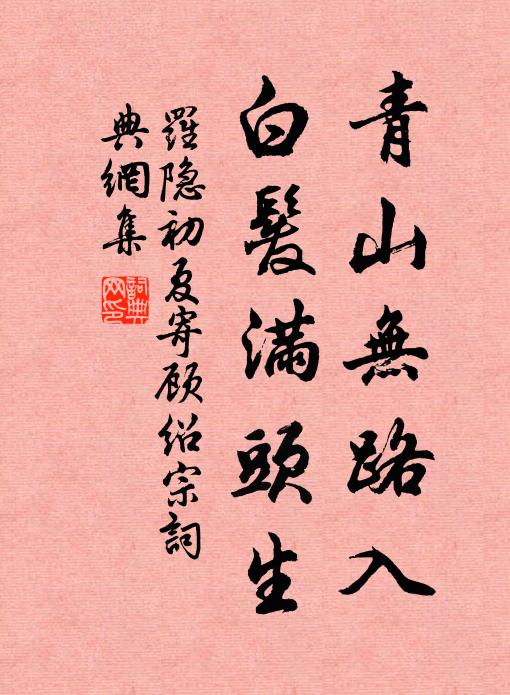 青山無路入
白髮滿頭生
羅隐初夏寄顾绍宗詞
典網集
詞典
网印